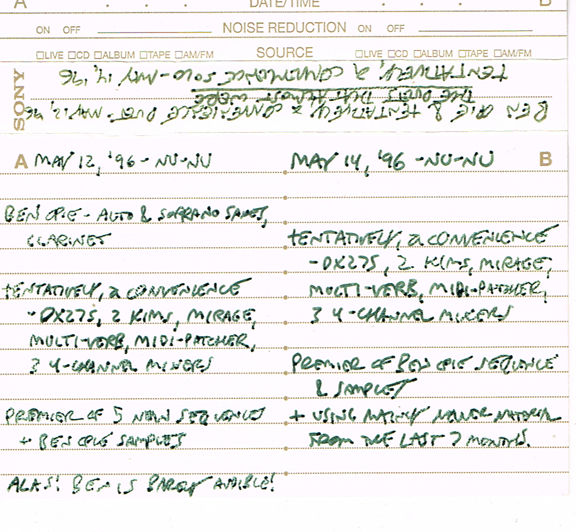 A DATE/TIME B
ON OFF NOISE REDUCTION ON OFF
□LIVE □CD □ALBUM □TAPE □AM/FM SOURCE □LIVE □CD □ALBUM □TAPE □AM/FM
SONY
BEN OPIE & TENTATIVELY, A CONVENIENCE DUET - MAY 12, '96
THE DUETS THAT ALMOST WERE
TENTATIVELY, A CONVENIENCE SOLO - MAY 14, '96
A MAY 12, '96 - NU-NU
BEN OPIE - ALTO & SOPRANO SAXES,
CLARINET
TENTATIVELY, A CONVENIENCE
- DX27S, 2 KIMS, MIRAGE,
MULTI-VERB, MIDI-PATCHER,
3 4-CHANNEL MIXERS
PREMIER OF 5 NEW SEQUENCES
+ BEN OPIE SAMPLES
ALAS! BEN IS BARELY AUDIBLE!
MAY 14, '96 - NU-NU B
TENTATIVELY, A CONVENIENCE
- DX27S, 2 KIMS, MIRAGE,
MULTI-VERB, MIDI-PATCHER,
3 4-CHANNEL MIXERS
PREMIER OF BEN OPIE SEQUENCE
& SAMPLES
+ USING MAINLY NEWER MATERIAL
FROM THE LAST 7 MONTHS.